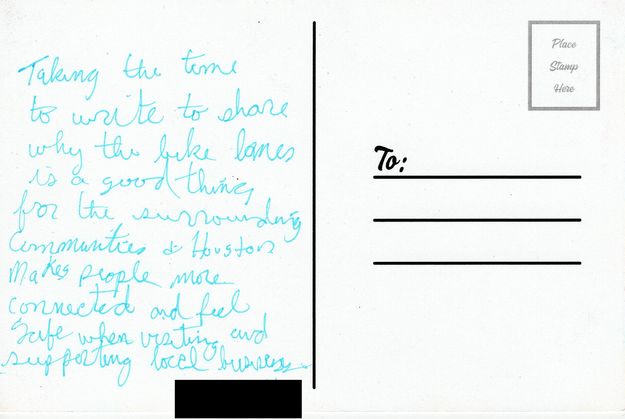 Taking the time
to write to share
why the bike lanes
is a good thing
for the surrounding
Communities & Houston
Makes people more
connected and feel
Safe when visiting and
supporting local business
Place
Stamp
Here
To: